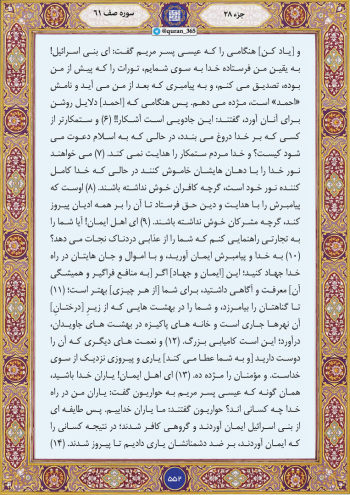 جزء ۲۸
سوره صف ۶۱
@quran_365
و [یاد کن] هنگامی را که عیسی پسر مریم گفت: ای بنی اسرائیل!
به یقین من فرستاده خدا به سوی شمایم، تورات را که پیش از من
بوده، تصدیق می کنم، و به پیامبری که بعد از من می آید و نامش
«احمد» است، مژده می دهم. پس هنگامی که [احمد] دلایل روشن
برای آنان آورد، گفتند: این جادویی است آشکار!! (۶) و ستمکارتر از
کسی که بر خدا دروغ می بندد، در حالی که به اسلام دعوت می
شود کیست؟ و خدا مردم ستمکار را هدایت نمی کند. (۷) می خواهند
نور خدا را با دهان هایشان خاموش کنند در حالی که خدا کامل
کننده نور خود است، گرچه کافران خوش نداشته باشند. (۸) اوست که
پیامبرش را با هدایت و دین حق فرستاد تا آن را بر همه ادیان پیروز
کند، گرچه مشرکان خوش نداشته باشند. (۹) ای اهل ایمان! آیا شما را
به تجارتی راهنمایی کنم که شما را از عذابی دردناک نجات می دهد؟
(۱۰) به خدا و پیامبرش ایمان آورید، و با اموال و جان هایتان در راه
خدا جهاد کنید؛ این [ایمان و جهاد] اگر [به منافع فراگیر و همیشگی
آن] معرفت و آگاهی داشتید، برای شما [از هر چیزی] بهتر است؛ (۱۱)
تا گناهتان را بیامرزد، و شما را در بهشت هایی که از زیرِ [درختانِ]
آن نهرها جاری است و خانه های پاکیزه در بهشت های جاویدان،
درآورد؛ این است کامیابی بزرگ. (۱۲) و نعمت های دیگری که آن را
دوست دارید [و به شما عطا می کند] یاری و پیروزی نزدیک از سوی
خداست. و مؤمنان را مژده ده. (۱۳) ای اهل ایمان! یاران خدا باشید،
همان گونه که عیسی پسر مریم به حواریون گفت: یاران من در راه
خدا چه کسانی اند؟ حواریون گفتند: ما یاران خداییم. پس طایفه ای
از بنی اسرائیل ایمان آوردند و گروهی کافر شدند؛ در نتیجه کسانی را
که ایمان آوردند، بر ضد دشمنانشان یاری دادیم تا پیروز شدند. (۱۴)
۵۵۲